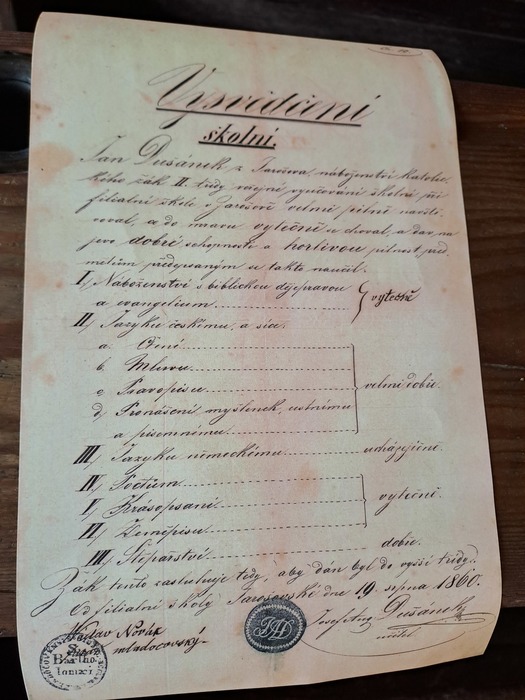 Vysvědčení
školní.
Jan Dušánek z Jarošova, náboženství katolic
kého žák II. třídy veřejné vyučování školní při
filialní škole v Jarošově velmi pilně navště
voval, a do mravů výtečně se choval, a dav na
jevo dobré schopnosti a horlivou pilnost, před
mětům předepsaným se takto naučil.
I, Náboženství s biblickou dějepravou
a evangelium } výtečně
II, Jazyku českému, a sice:
a. Čtení
b. Mluvu
c, Pravopisu velmi dobře.
d, Pronášení myšlenek, ustnímu
a písemnému
III, Jazyku německému ucházejičně.
IV, Počtům
V, Krásopsaní } výtečně.
VI, Zeměpisu
VII, Štěpařství dobře.
Žák tento zasluhuje tedy, aby dán byl do vyšší třídy.
Od filialní školy Jarošovské dne 19. srpna 1860.
Vaclav Novák Josef Ant. Dušánek
mladočovský učitel
JAD
S.
Bartho
lomæi